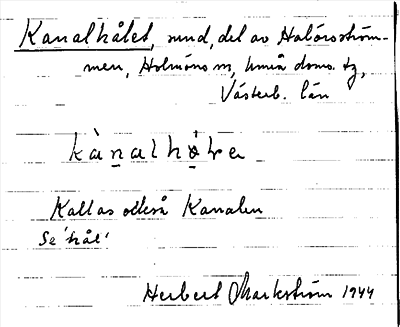 Kanalhålet, sund, del av Halörsström-
men, Holmöns sn, Umeå doms. tg,
Västerb. län
kànalhå̀ḷe
Kallas också Kanalen
Se 'hål'
Herbert Markström 1944